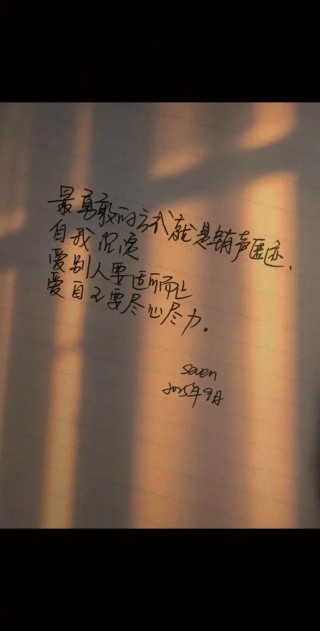 最勇敢的方式就是销声匿迹,
自我沉淀
爱别人要适可而止
爱自己要尽心尽力。
seven
2025年9月